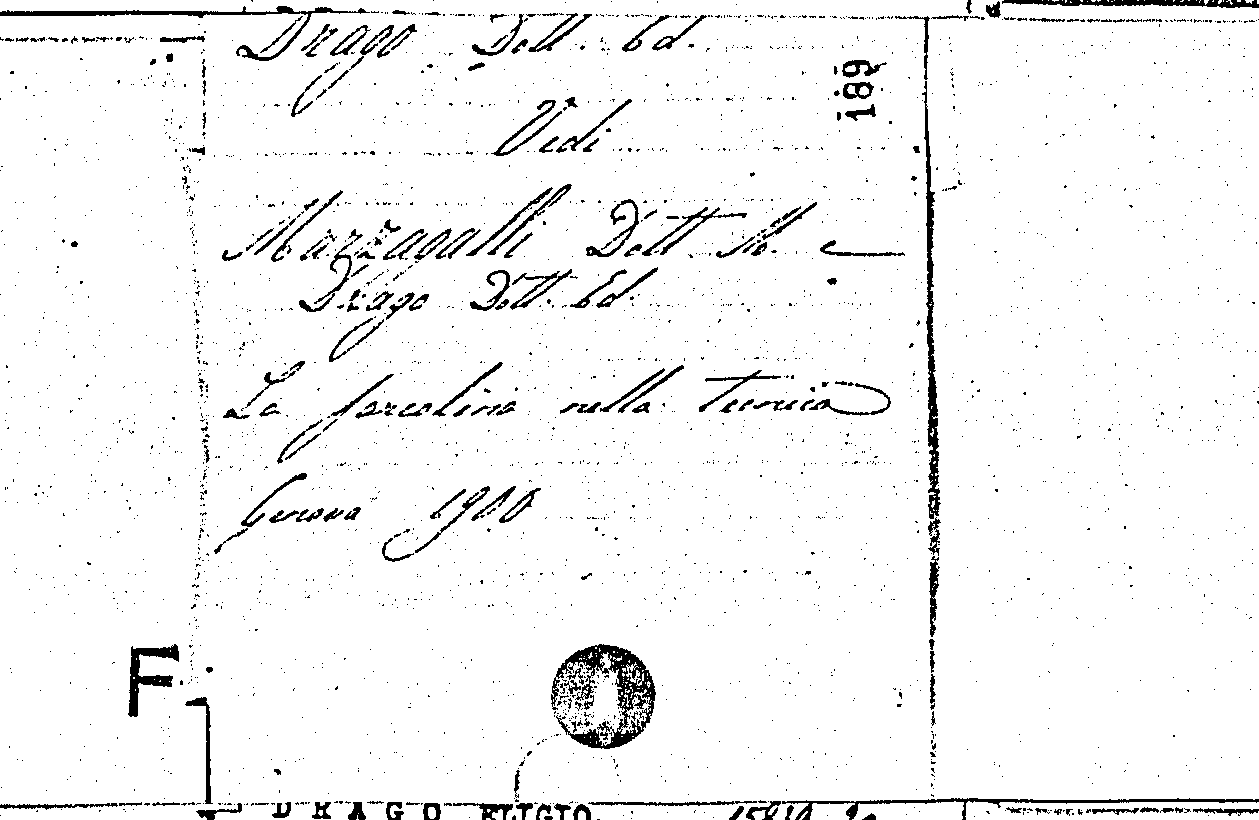 Drago Dott. Ed.
189
Vedi
Marzagalli Dott. M. e
Drago Dott. Ed.
La nella tecnica
Genova 1900
F
DRAGO ELIGIO.